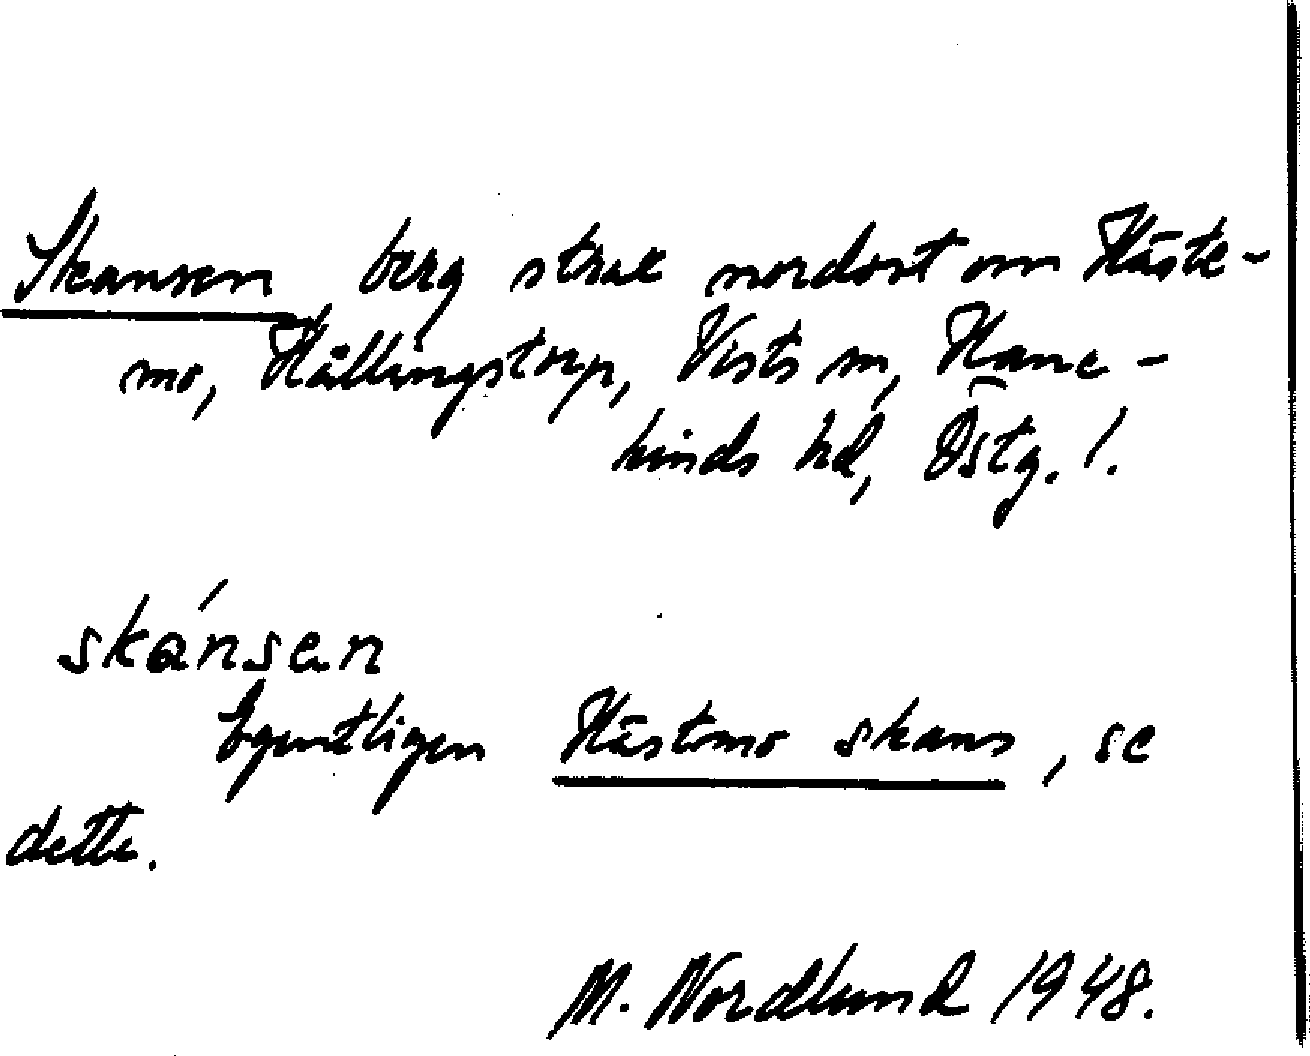 Skansen, berg strax nordost om Häste-
mo, Hållingstorp, Vists sn, Hane-
kinds hd, Östg. l.
skánsen
Egentligen Hästmo skans, se
detta.
M. Nordlund 1948.